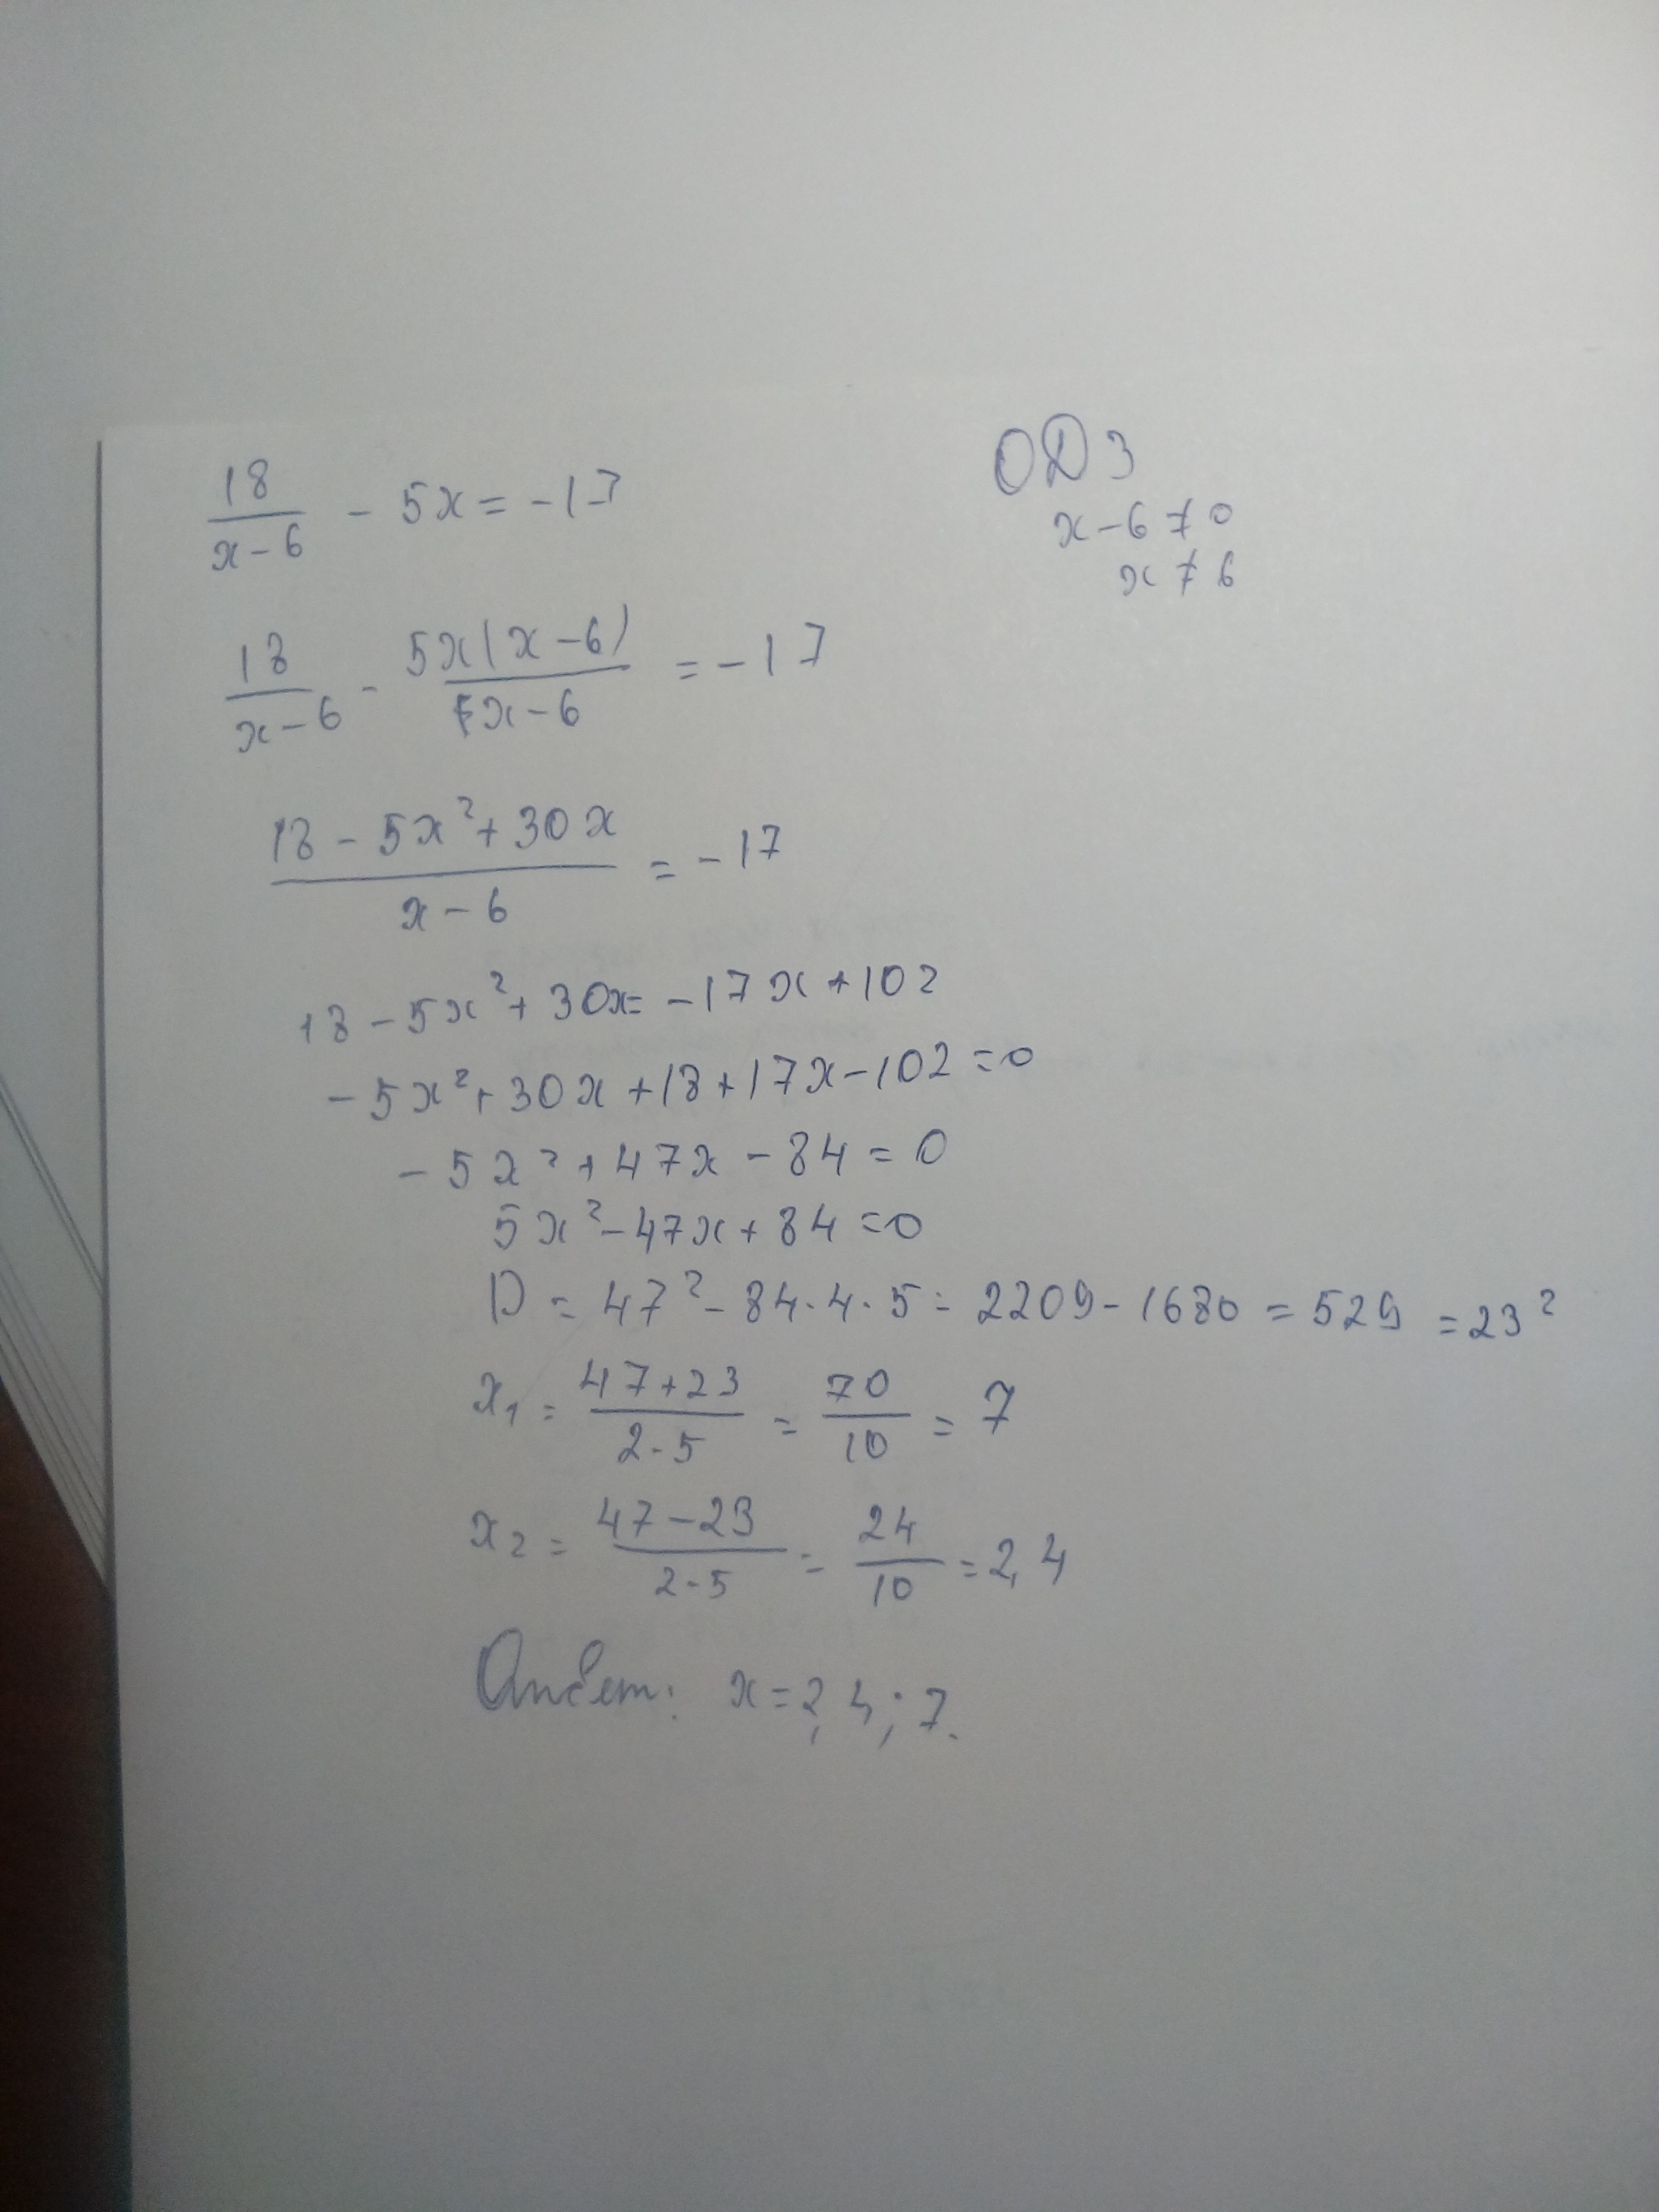 18/(x-6) - 5x = -17
ОДЗ
x-6≠0
x≠6
18/(x-6) - 5x(x-6)/(x-6) = -17
(18-5x²+30x)/(x-6) = -17
18-5x²+30x=-17x+102
-5x²+30x+18+17x-102=0
-5x²+47x-84=0
5x²-47x+84=0
D=47²-84·4·5=2209-1680=529=23²
x₁=(47+23)/(2·5)=70/10=7
x₂=(47-23)/(2·5)=24/10=2,4
Ответ: x=2,4; 7.